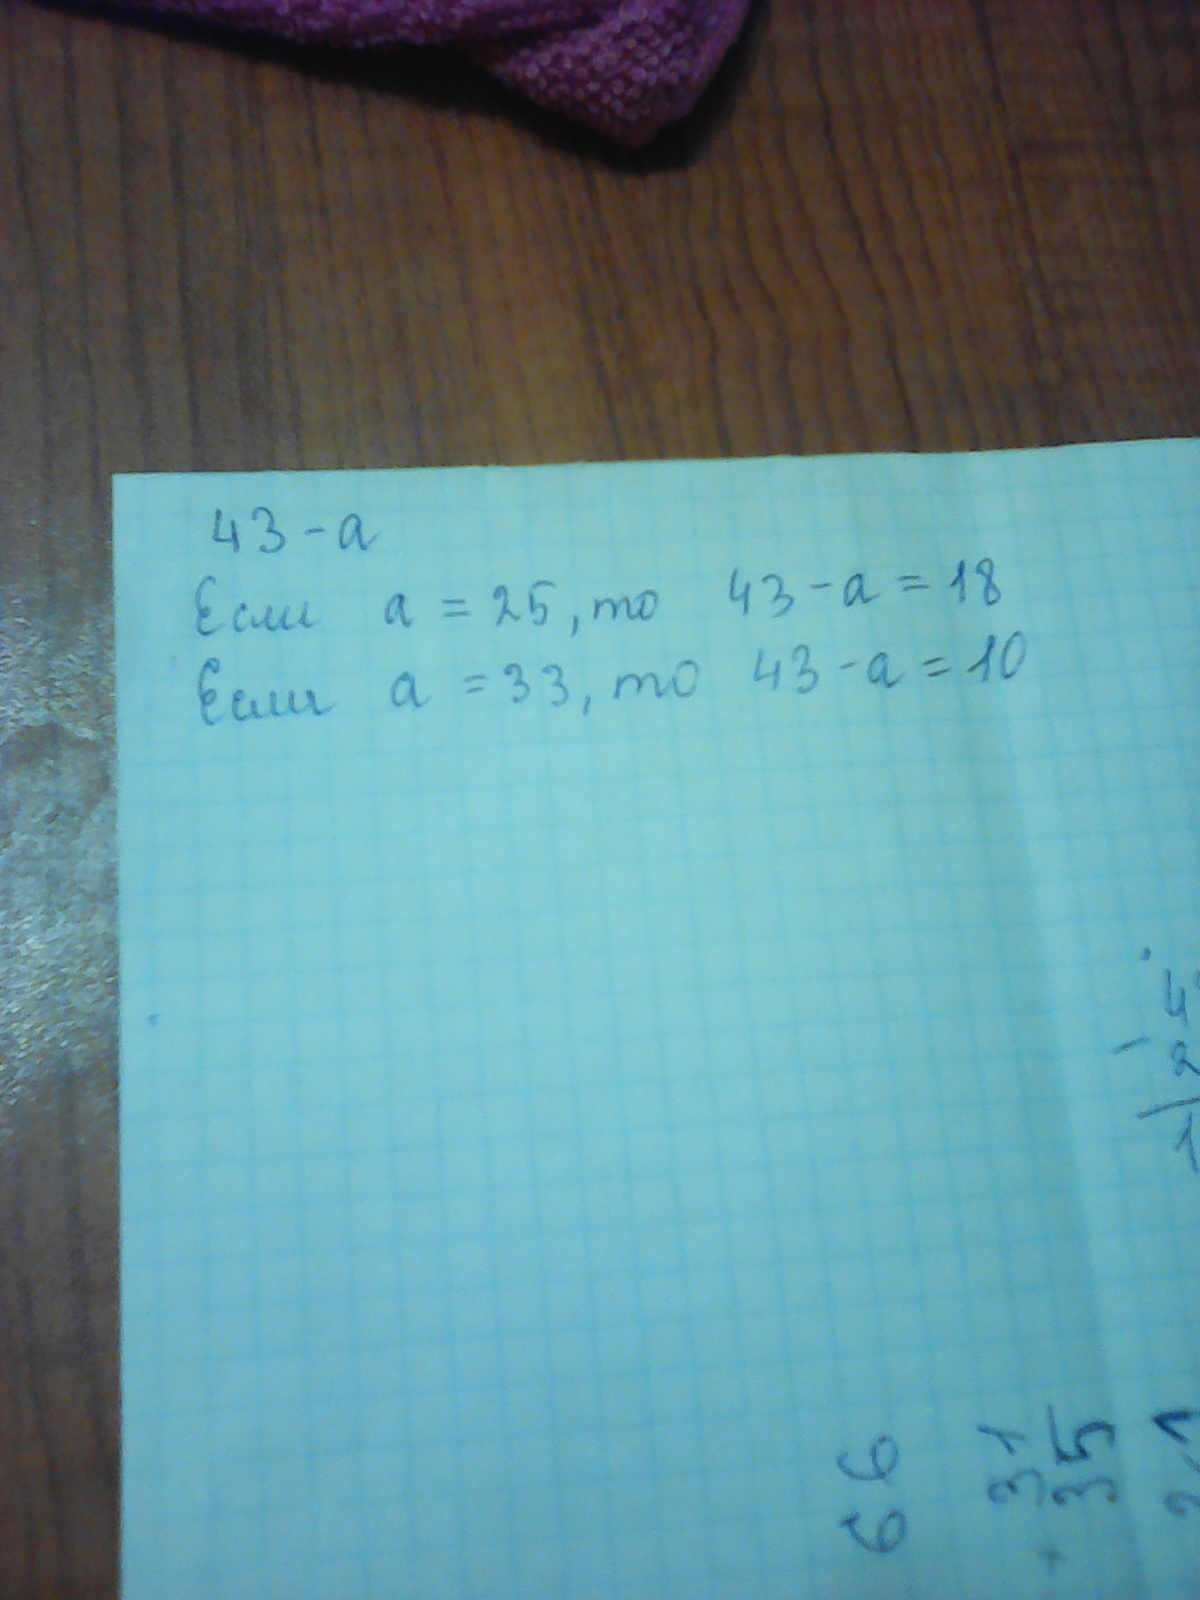 43-а
Если а = 25, то 43-а = 18
Если а = 33, то 43-а = 10
4
- 2
1
31
+ 35
66